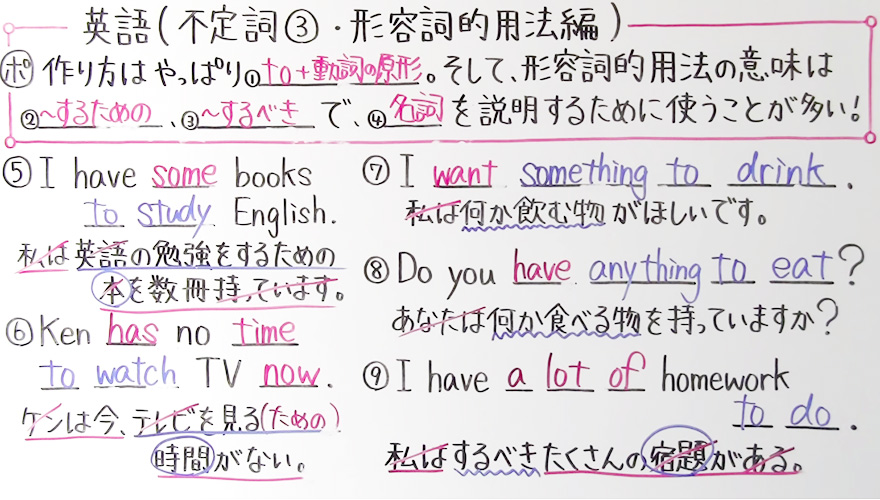 英語(不定詞③・形容詞的用法編)
ポ 作り方は やっぱり①to+動詞の原形。そして、形容詞的用法の意味は
②~するための、③~するべき で、④名詞を説明するために使うことが多い!
⑤I have some books
to study English.
私は英語の勉強をするための
本を数冊持っています。
⑥Ken has no time
to watch TV now.
ケンは今、テレビを見る(ための)
時間がない。
⑦I want something to drink.
私は何か飲む物がほしいです。
⑧Do you have anything to eat?
あなたは何か食べる物を持っていますか?
⑨I have a lot of homework
to do.
私はするべきたくさんの宿題がある。